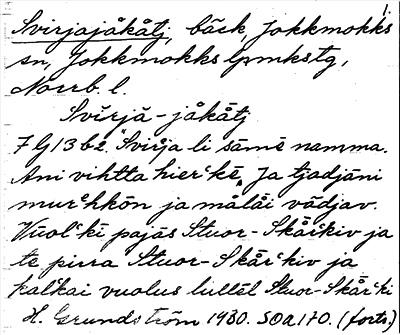 1.
Svirjajåkåtj, bäck, Jokkmokks
sn, Jokkmokks lpmkstg,
Norrb. l.
Svīrjā-jåkåtj
7 G/13 b 2. "Svirja li sämē namma.
Ani vihtta hier'kē". Ja tjadjāni
mur'hkōn ja målåi vädjav.
Vuol'ki pajás Stuor-Skår'kiv ja
te pirra Stuor-Skår'kiv ja
kal'kai vuolus lullēl Stuor-Skår'ki
H. Grundström 1930. SOA 170. (forts.)